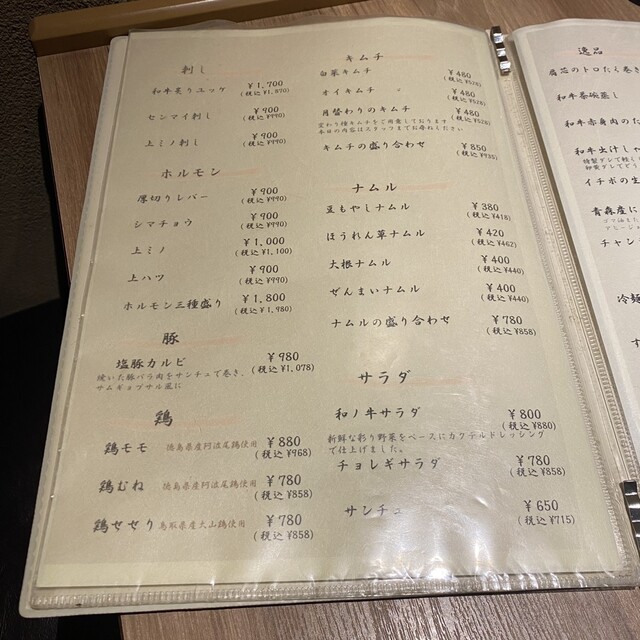 刺し
和牛炙りユッケ ¥1,700
(税込 ¥1,870)
センマイ刺し ¥900
(税込 ¥990)
上ミノ刺し ¥900
(税込 ¥990)
ホルモン
厚切りレバー ¥900
(税込 ¥990)
シマチョウ ¥900
(税込 ¥990)
上ミノ ¥1,000
(税込 ¥1,100)
上ハツ ¥900
(税込 ¥990)
ホルモン三種盛り ¥1,800
(税込 ¥1,980)
豚
塩豚カルビ ¥980
(税込 ¥1,078)
焼いた豚バラ肉をサンチュで巻き、
サムギョプサル風に
鶏
鶏モモ 徳島県産阿波尾鶏使用 ¥880
(税込 ¥968)
鶏むね 徳島県産阿波尾鶏使用 ¥780
(税込 ¥858)
鶏せせり 鳥取県産大山鶏使用 ¥780
(税込 ¥858)
キムチ
白菜キムチ ¥480
(税込 ¥528)
オイキムチ ¥480
(税込 ¥528)
月替わりのキムチ ¥480
(税込 ¥528)
変わり種キムチをご用意しております
本日の内容はスタッフまでお尋ねください
キムチの盛り合わせ ¥850
(税込 ¥935)
ナムル
豆もやしナムル ¥380
(税込 ¥418)
ほうれん草ナムル ¥420
(税込 ¥462)
大根ナムル ¥400
(税込 ¥440)
ぜんまいナムル ¥400
(税込 ¥440)
ナムルの盛り合わせ ¥780
(税込 ¥858)
サラダ
和ノ牛サラダ ¥800
(税込 ¥880)
新鮮な彩り野菜をベースにカクテルドレッシング
で仕上げました。
チョレギサラダ ¥780
(税込 ¥858)
サンチュ ¥650
(税込 ¥715)
逸品
のトロたく巻き
和牛茶碗蒸し
和牛赤身肉のた
和牛出汁しゃ
特製ダレで軽く
イチボの生
青森産に
チャン
冷麺
す